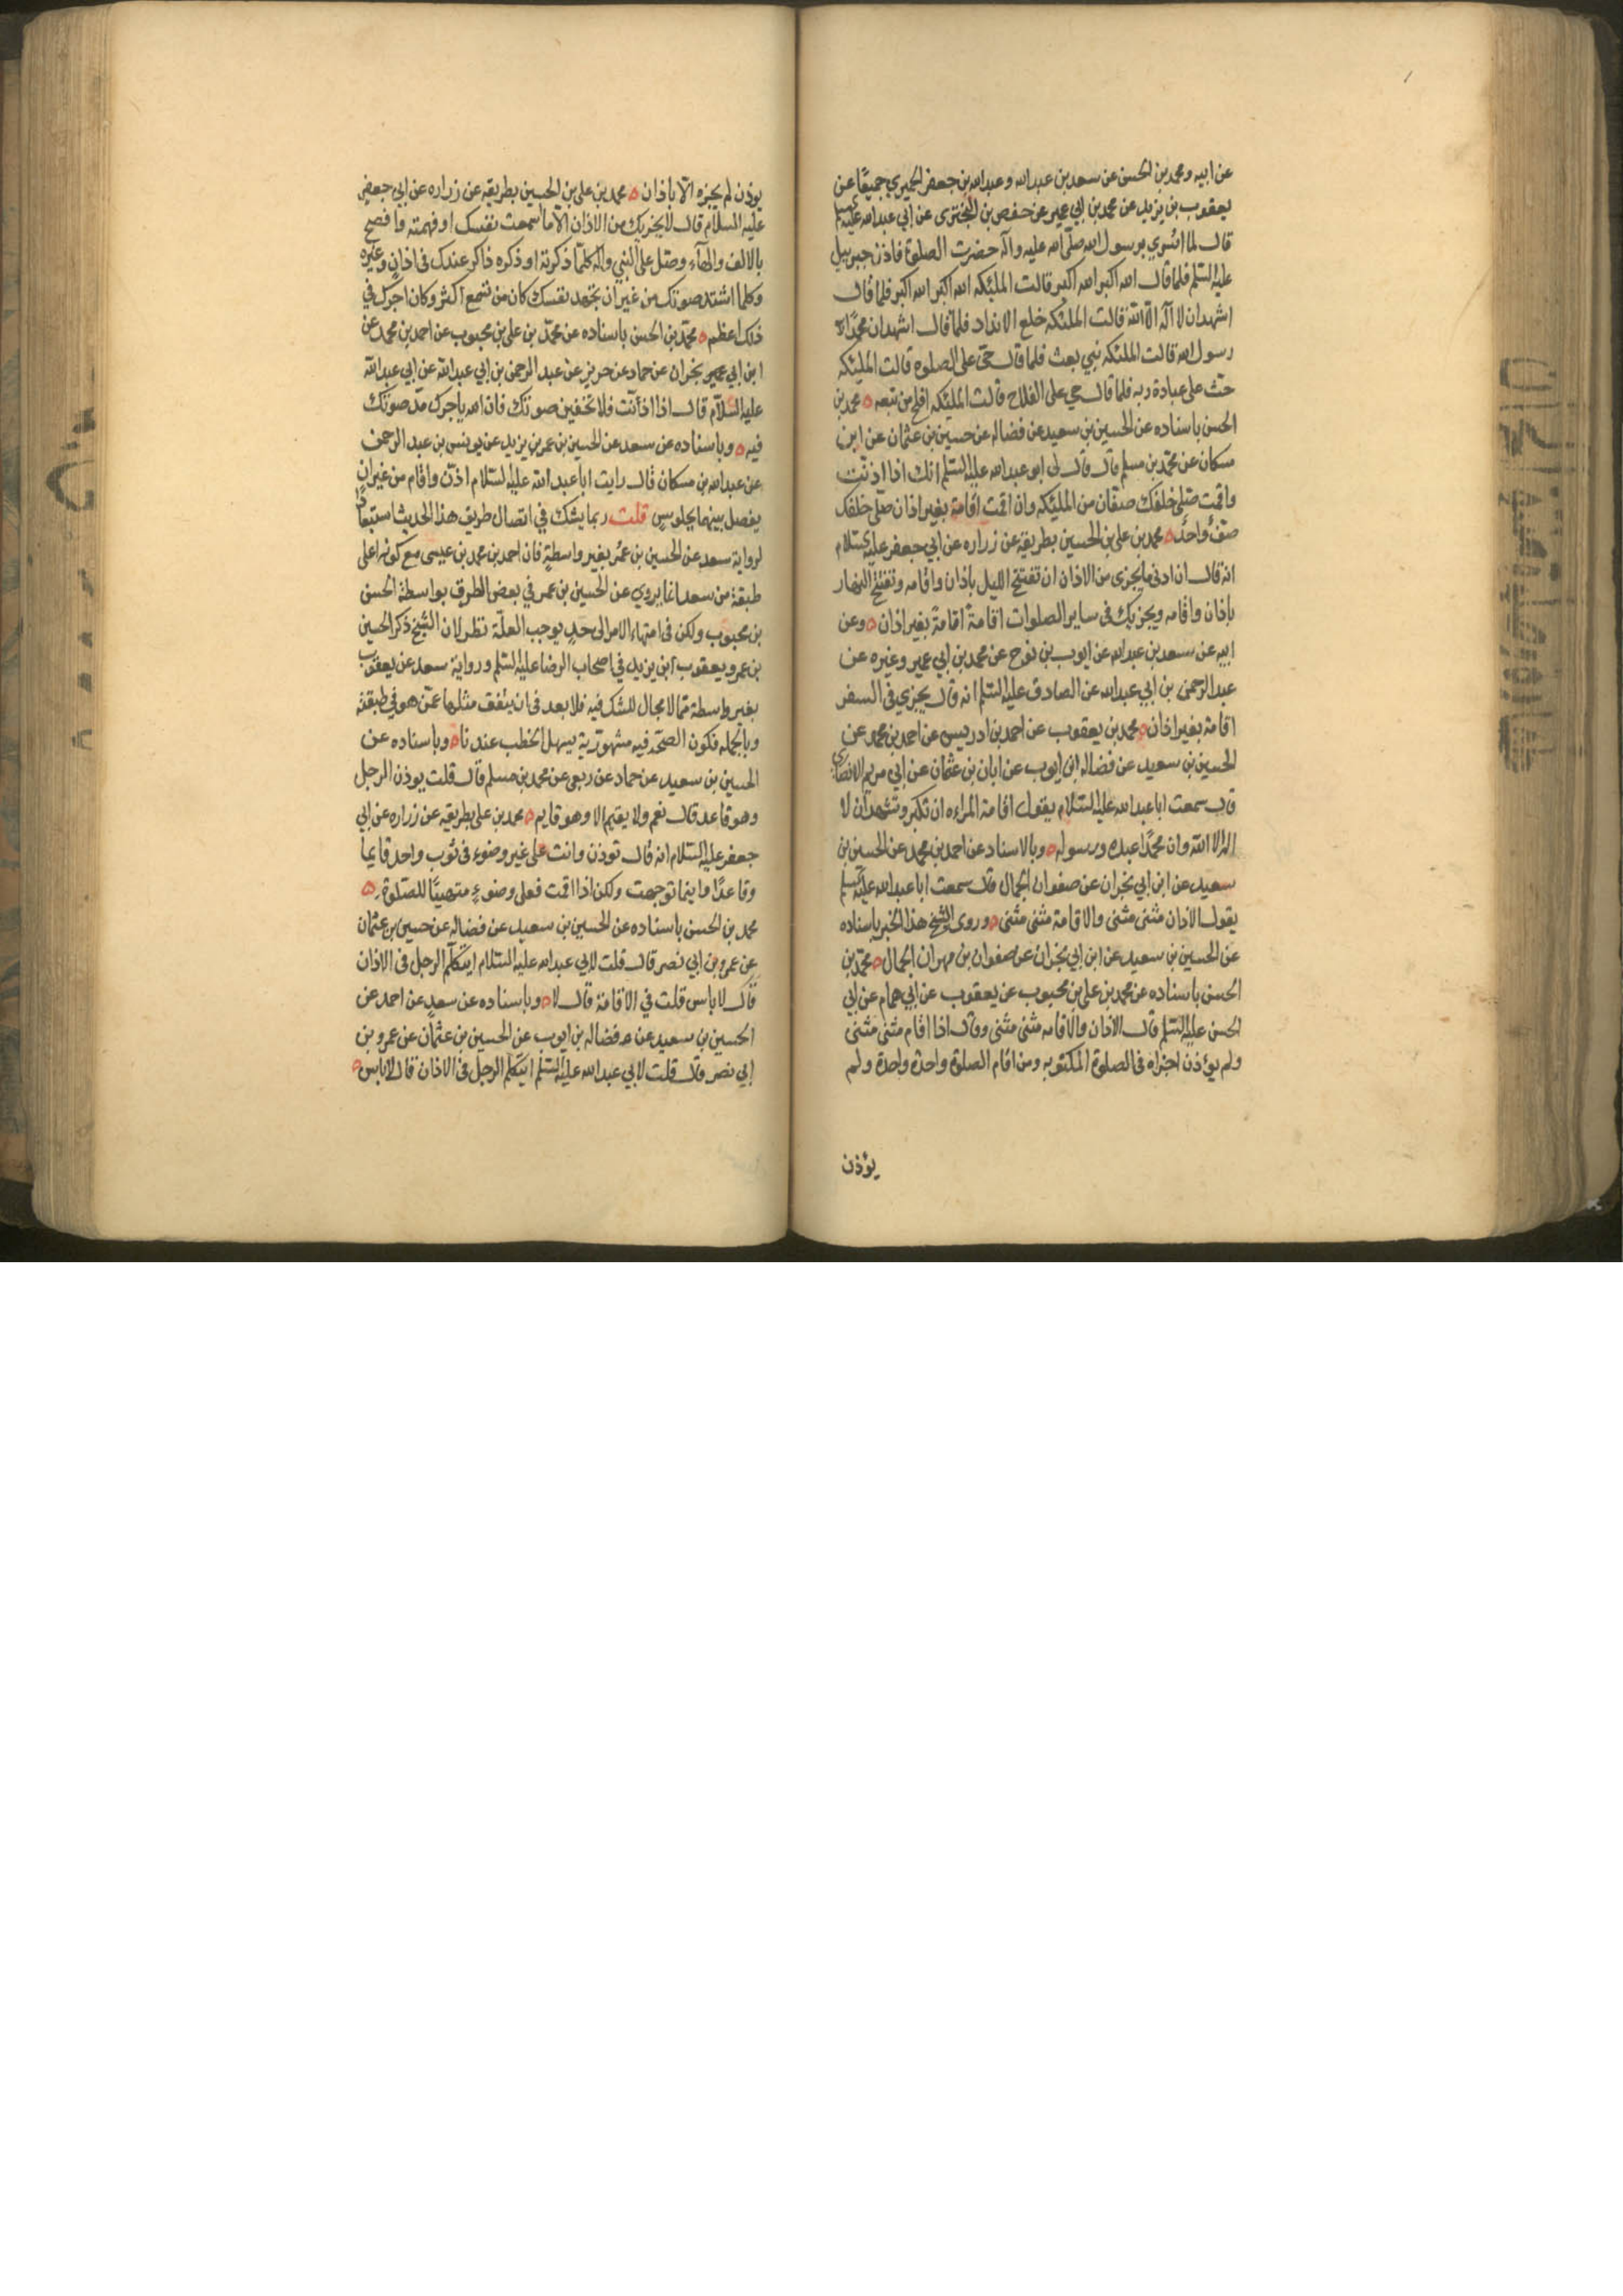 عن ابيه ومحمد بن الحسن عن سعد بن عبد الله وعبد الله بن جعفر الحميري جميعًا عن
يعقوب بن يزيد عن محمد بن ابي عمير عن حفص بن البختري عن ابي عبد الله عليه السلم
قال لما اسُري برسول الله صلّى الله عليه واله حضرت الصلوة فاذن جبرييل
عليه السلم فلما قال الله اكبر الله اكبر قالت الملئكه الله اكبر الله اكبر فلما قال
اشهد ان لا اله الّا الله قالت الملئكه خلع الانداد فلما قال اشهد ان محمدًا
رسول الله قالت الملئكه نبي بعث فلما قال حيّ على الصلوه قالت الملئكه
حثّ على عبادة ربه فلما قال حي على الفلاح قالت الملئكه افلح من تبعه ٥ محمد بن
الحسن باسناده عن الحسين بن سعيد عن فضاله عن حسين بن عثمان عن ابن
مسكان عن محمّد بن مسلم قال قال لي ابو عبد الله عليه السّلم انك اذا اذنت
واقمت صلى خلفك صفّان من الملئكه وان اقمت اقامة بغير اذان صلّى خلفك
صفّ واحد ٥ محمد بن على بن الحسين بطريقه عن زراره عن ابي جعفر عليه السلام
انه قال ان ادنى ما يجزى من الاذان ان تفتتح الليل باذان واقامه وتفتتح النهار
باذان واقامه ويجزيك فى ساير الصلوات اقامةً اقامةً بغير اذان ٥ وعن
ابيه عن سعد بن عبد الله عن ايوب بن نوح عن محمد بن ابي عمير وغيره عن
عبد الرحمن بن ابي عبد الله عن الصادق عليه السّلم انه قال يجزي فى السفر
اقامة بغير اذان ٥ محمد بن يعقوب عن احمد بن ادريس عن احمد بن محمد عن
الحسين بن سعيد عن فضاله ابن ايوب عن ابان بن عثمان عن ابي مريم الانصاري
قال سمعت ابا عبد الله عليه السّلام يقول اقامة المراءه ان تكبر وتشهد ان لا
اله الا الله وان محمدًا عبده ورسوله ٥ وبالاسناد عن احمد بن محمد عن الحسين بن
سعيد عن ابن ابي نجران عن صفوان الجمال قال سمعت ابا عبد الله عليه السلم
يقول الاذان مثنى مثنى والاقامة مثنى مثنى ٥ وروى الشيخ هذا الخبر باسناده
عن الحسين بن سعيد عن ابن ابي نجران عن صفوان بن مهران الجمال ٥ محمّد بن
الحسن باسناده عن محمد بن على بن محبوب عن يعقوب عن ابي همام عن ابي
الحسن عليه السّلم قال الاذان والاقامه مثنى مثنى وقال اذا اقام مثنى مثنى
ولم يؤذن اجزاه فى الصلوة المكتوبه ومن اقام الصلوة واحدة واحدة ولم
يؤذن
يوذن لم يجزه الّا باذان ٥ محمد بن على بن الحسين بطريقه عن زراره عن ابي جعفر
عليه السلام قال لا يجزيك من الاذان الّا ما اسمعت نفسك او فهمته وافصح
بالالف والهآء وصلّ على النبي واله كلمّا ذكرته او ذكره ذاكر عندك فى اذانٍ وغيره
وكلما اشتد صوتك من غير ان تجهد نفسك كان من تسمع اكثر وكان اجرك في
ذلك اعظم ٥ محمّد بن الحسن باسناده عن محمّد بن على بن محبوب عن احمد بن محمد عن
ابن ابي نجران عن حماد عن حريز عن عبد الرحمن بن ابي عبد الله عن ابي عبد الله
عليه السّلام قال اذا اذّنت فلا تخفين صوتك فان الله ياجرك مدّ صوتك
فيه ٥ وباسناده عن سعد عن الحسين بن عمر بن يزيد عن يونس بن عبد الرحمن
عن عبد الله بن مسكان قال رايت ابا عبد الله عليه السّلام اذّن واقام من غير ان
يفصل بينهما بجلوسٍ قلت ربما يشك في اتصال طريق هذا الحديث استبعادًا
لرواية سعد عن الحسين بن عمُر بغير واسطةٍ فان احمد بن محمد بن عيسى مع كونه اعلى
طبقة من سعد انما يروي عن الحسين بن عمر في بعض الطرق بواسطة الحسن
بن محبوب ولكن فى انتهاء الامر الى حدٍ يوجب العلّة نظر لان الشيخ ذكر الحسين
بن عمر ويعقوب ابن يزيد في اصحاب الرضا عليه السّلم ورواية سعد عن يعقوب
بغير واسطة ممّا لا مجال للشك فيه فلا بعد فى ان يتفق مثلها عمّن هو في طبقته
وبالجمله فكون الصحّة فيه مشهوريّة يسهل الخطب عندنا ٥ وباسناده عن
الحسين بن سعيد عن حماد عن ربعي عن محمد بن مسلم قال قلت يوذن الرجل
وهو قاعد قال نعم ولا يقيم الا وهو قايم ٥ محمد بن على بطريقه عن زراره عن ابي
جعفر عليه السّلام انه قال توذن وانت على غير وضوء فى ثوب واحد قايماً
وقاعدًا واينما توجهت ولكن اذا اقمت فعلى وضوءٍ متهيّاً للصّلوة ٥
محمد بن الحسن باسناده عن الحسين بن سعيد عن فضاله عن حسين بن عثمان
عن عمرو بن ابي نصر قال قلت لابي عبد الله عليه السّلام ايتكلّم الرجل فى الاذان
قال لا باس قلت في الاقامة قال لا ٥ وباسناده عن سعدٍ عن احمد عن
الحسين بن سعيد عن فضاله بن ايوب عن الحسين بن عثمان عن عمرو بن
ابي نصر قال قلت لابي عبد الله عليه السّلم ايتكلّم الرجل فى الاذان قال لا باس ٥